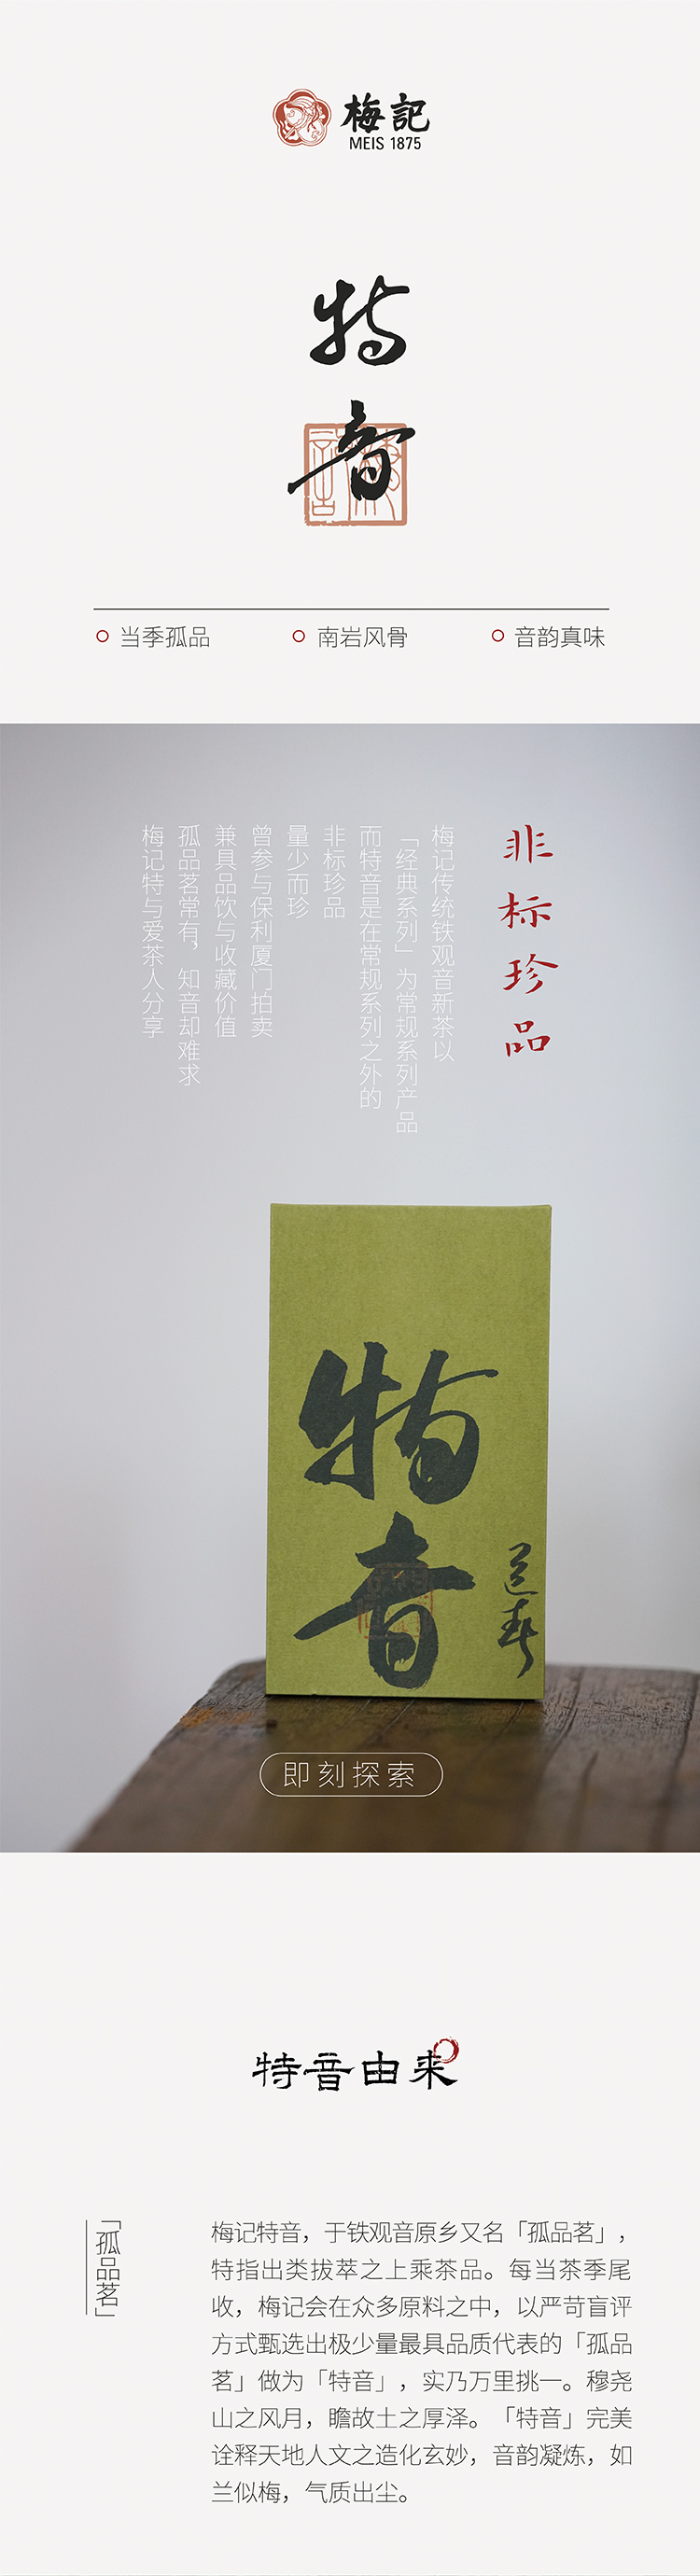 梅記
MEIS 1875
特
音
当季孤品
南岩风骨
音韵真味
非标珍品
梅记传统铁观音新茶以
「经典系列」为常规系列产品
而特音是在常规系列之外的
非标珍品
量少而珍
曾参与保利厦门拍卖
兼具品饮与收藏价值
孤品茗常有，知音却难求
梅记特与爱茶人分享
特
音
即刻探索
特音由来
「孤品茗」
梅记特音，于铁观音原乡又名「孤品茗」，
特指出类拔萃之上乘茶品。每当茶季尾
收，梅记会在众多原料之中，以严苛盲评
方式甄选出极少量最具品质代表的「孤品
茗」做为「特音」，实乃万里挑一。穆尧
山之风月，瞻故土之厚泽。「特音」完美
诠释天地人文之造化玄妙，音韵凝炼，如
兰似梅，气质出尘。